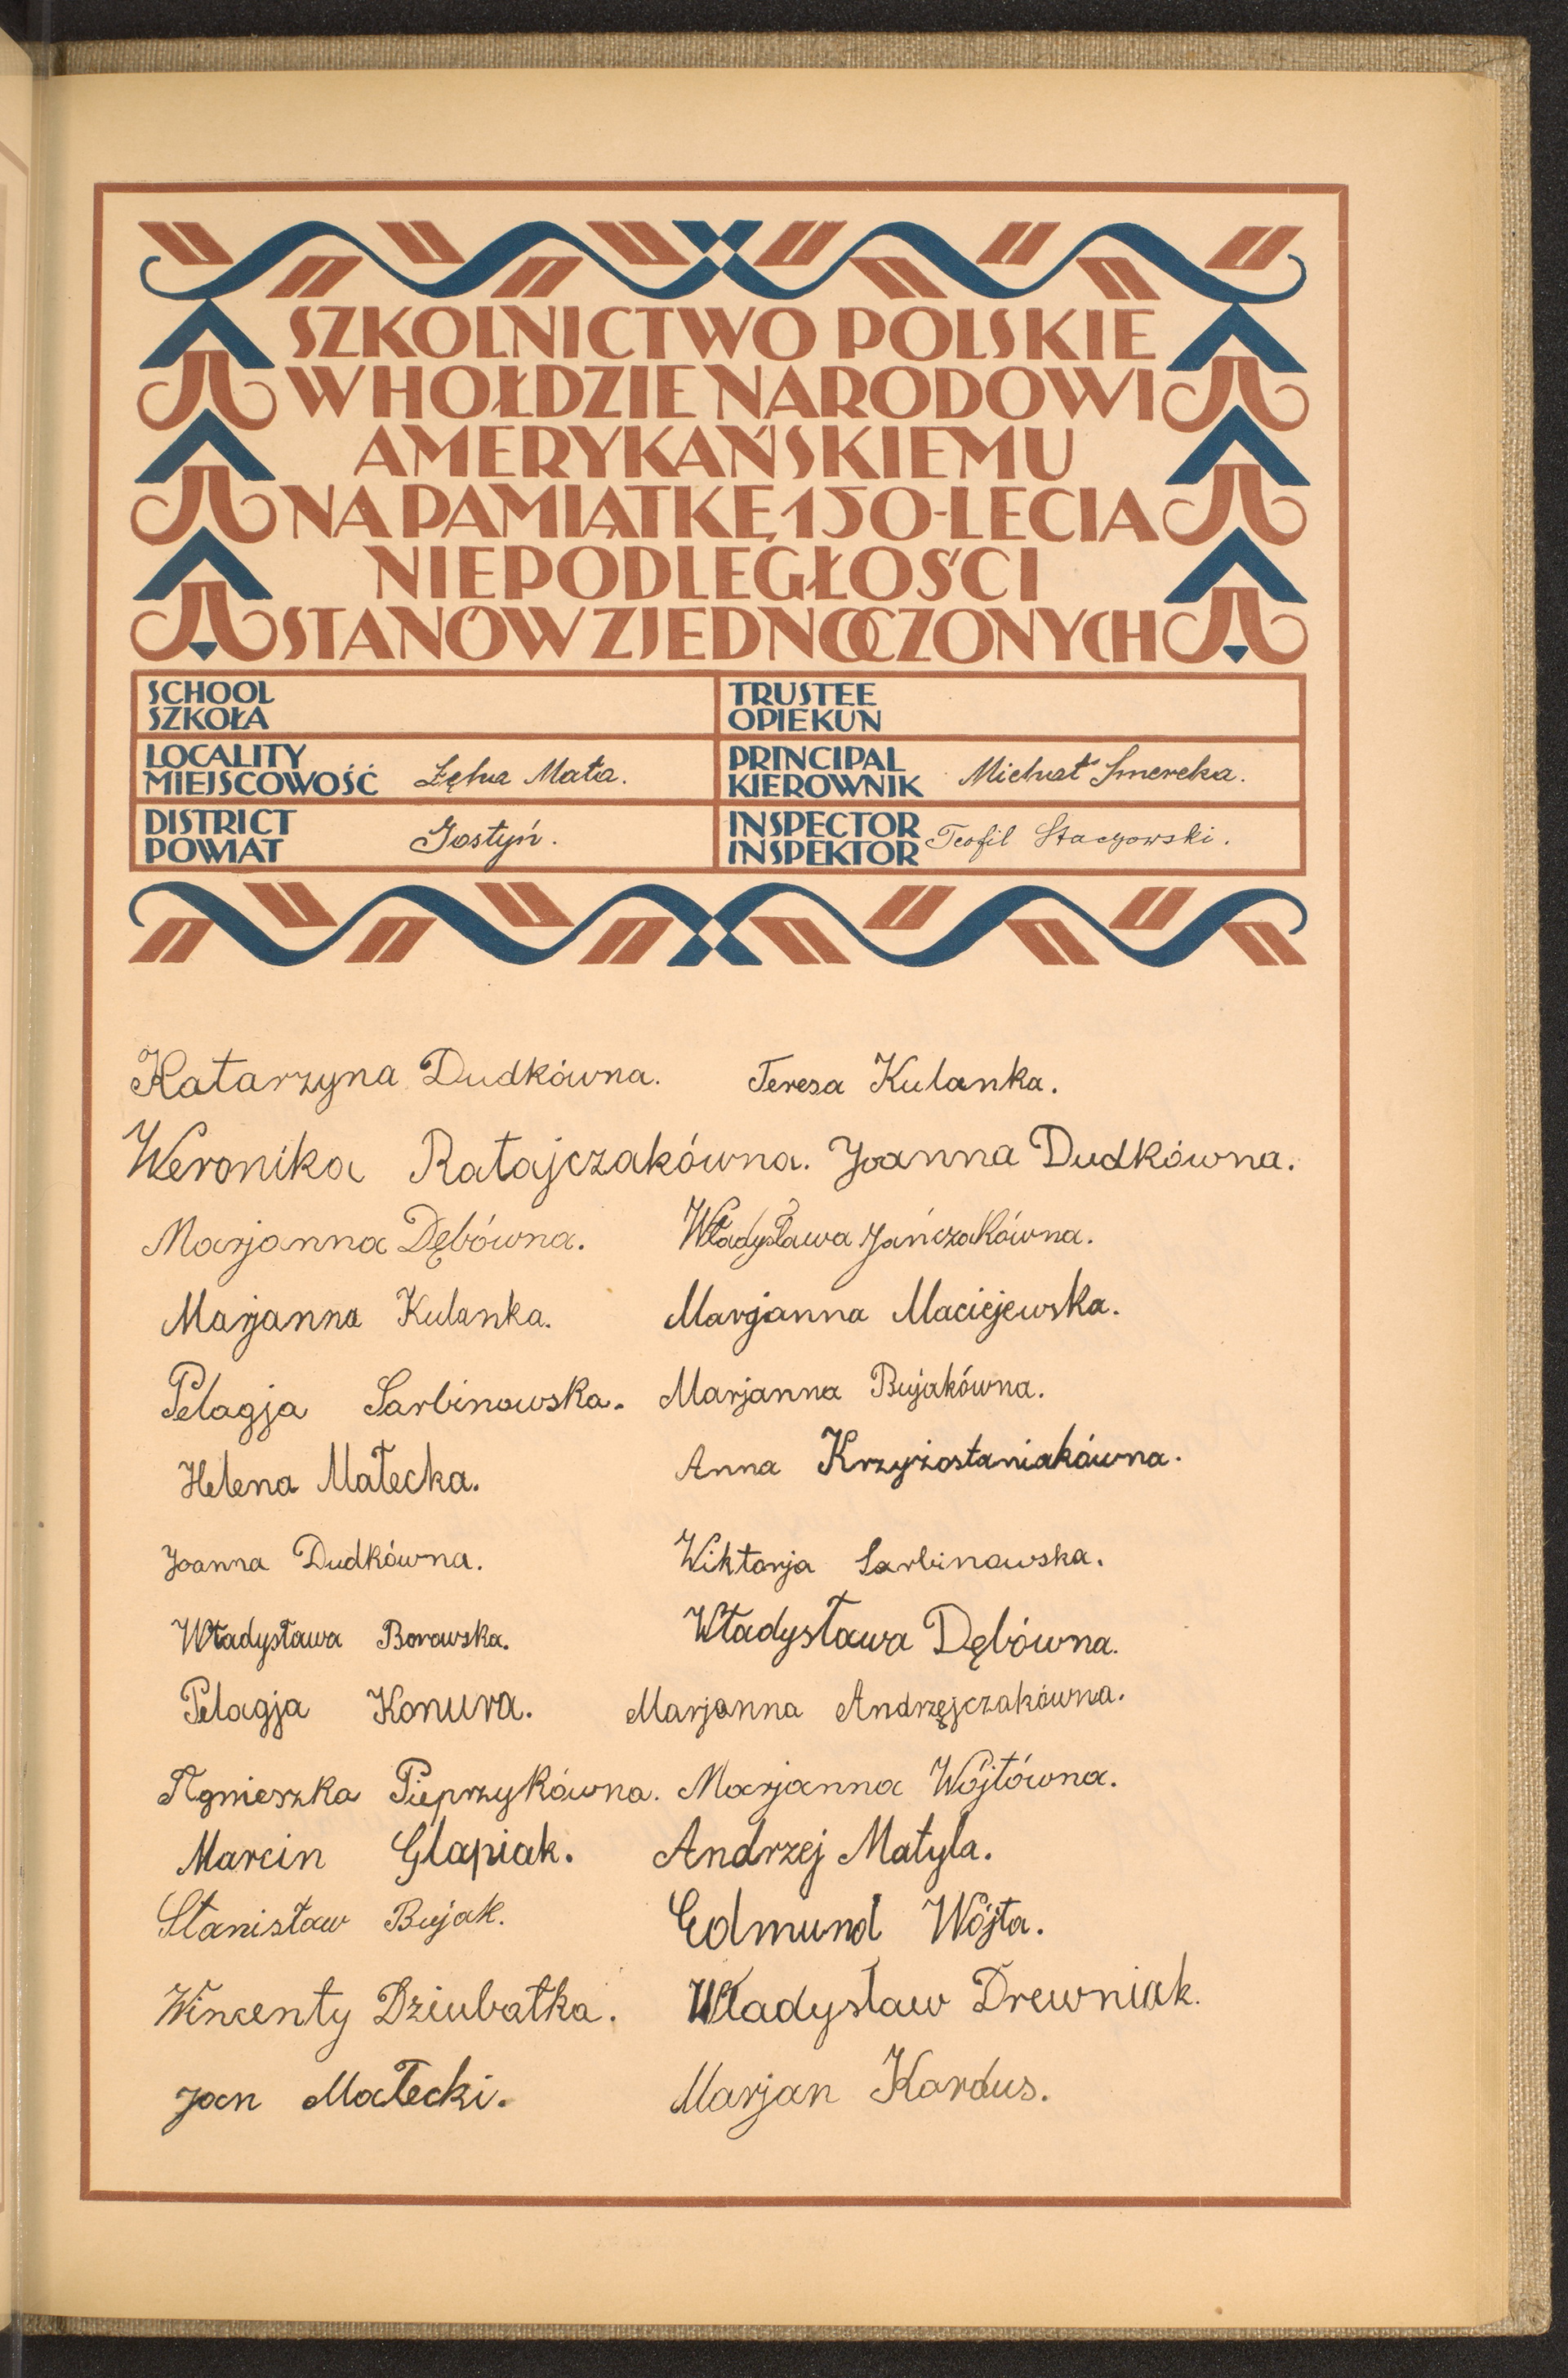 SZKOLNICTWO POLSKIE
W HOŁDZIE NARODOWI
AMERYKAŃSKIEMU
NA PAMIĄTKĘ 150-LECIA
NIEPODLEGŁOŚCI
STANÓW ZJEDNOCZONYCH
SCHOOL
SZKOŁA
TRUSTEE
OPIEKUN
LOCALITY
MIEJSCOWOŚĆ Łęka Mała.
PRINCIPAL
KIEROWNIK Michał Smereka.
DISTRICT
POWIAT Gostyń.
INSPECTOR
INSPEKTOR Teofil Stacyowski.
Katarzyna Dudkówna. Teresa Kulanka.
Weronika Ratajczakówna. Joanna Dudkówna.
Marjanna Dębówna. Władysława Jańczakówna.
Marjanna Kulanka. Marjanna Maciejewska.
Pelagja Sarbinowska. Marjanna Bujakówna.
Helena Małecka. Anna Krzyżostaniakówna.
Joanna Dudkówna. Wiktorja Sarbinowska.
Władysława Borowska. Władysława Dębówna.
Pelagja Konura. Marjanna Andrzejczakówna.
Agnieszka Pieprzykówna. Marjanna Wójtówna.
Marcin Glapiak. Andrzej Matyla.
Stanisław Bujak. Edmund Wójta.
Wincenty Dziubałka. Władysław Drewniak.
Jan Małecki. Marjan Kardus.